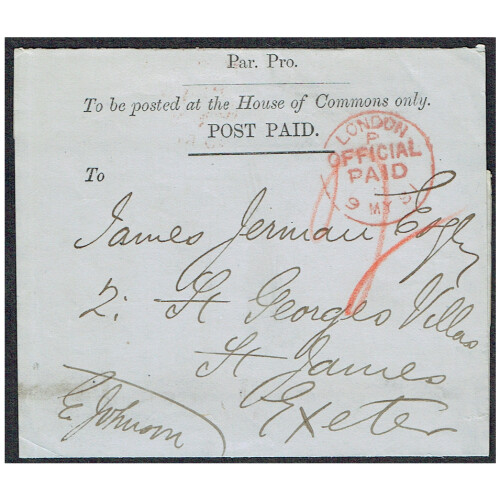 Par. Pro.
To be posted at the House of Commons only.
POST PAID.
LONDON
P
OFFICIAL
PAID
9 MY
To
James Jerman Esqr
2: St Georges Villas
St James
Exeter
E. Johnson